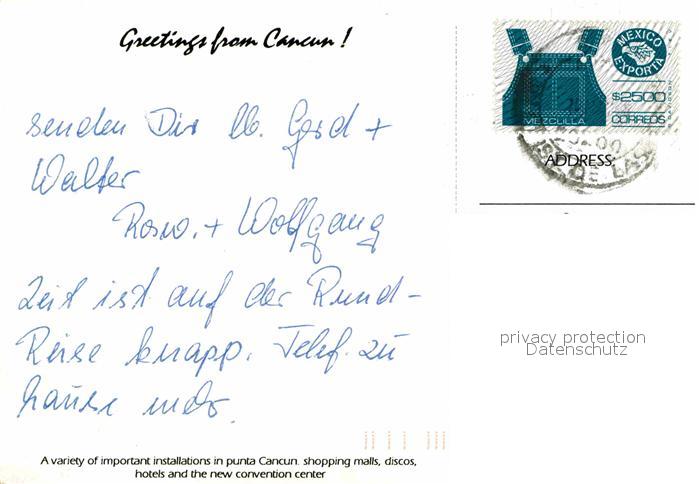 Greetings from Cancun !
senden Dir lb. Gerd +
Walter
Rosw. + Wolfgang
Zeit ist auf der Rund-
Reise knapp. Telef. zu
hause mehr.
A variety of important installations in punta Cancun. shopping malls, discos,
hotels and the new convention center
MEXICO
EXPORTA
$2500
CORREOS
MEZCLILLA
ADDRESS:
privacy protection
Datenschutz